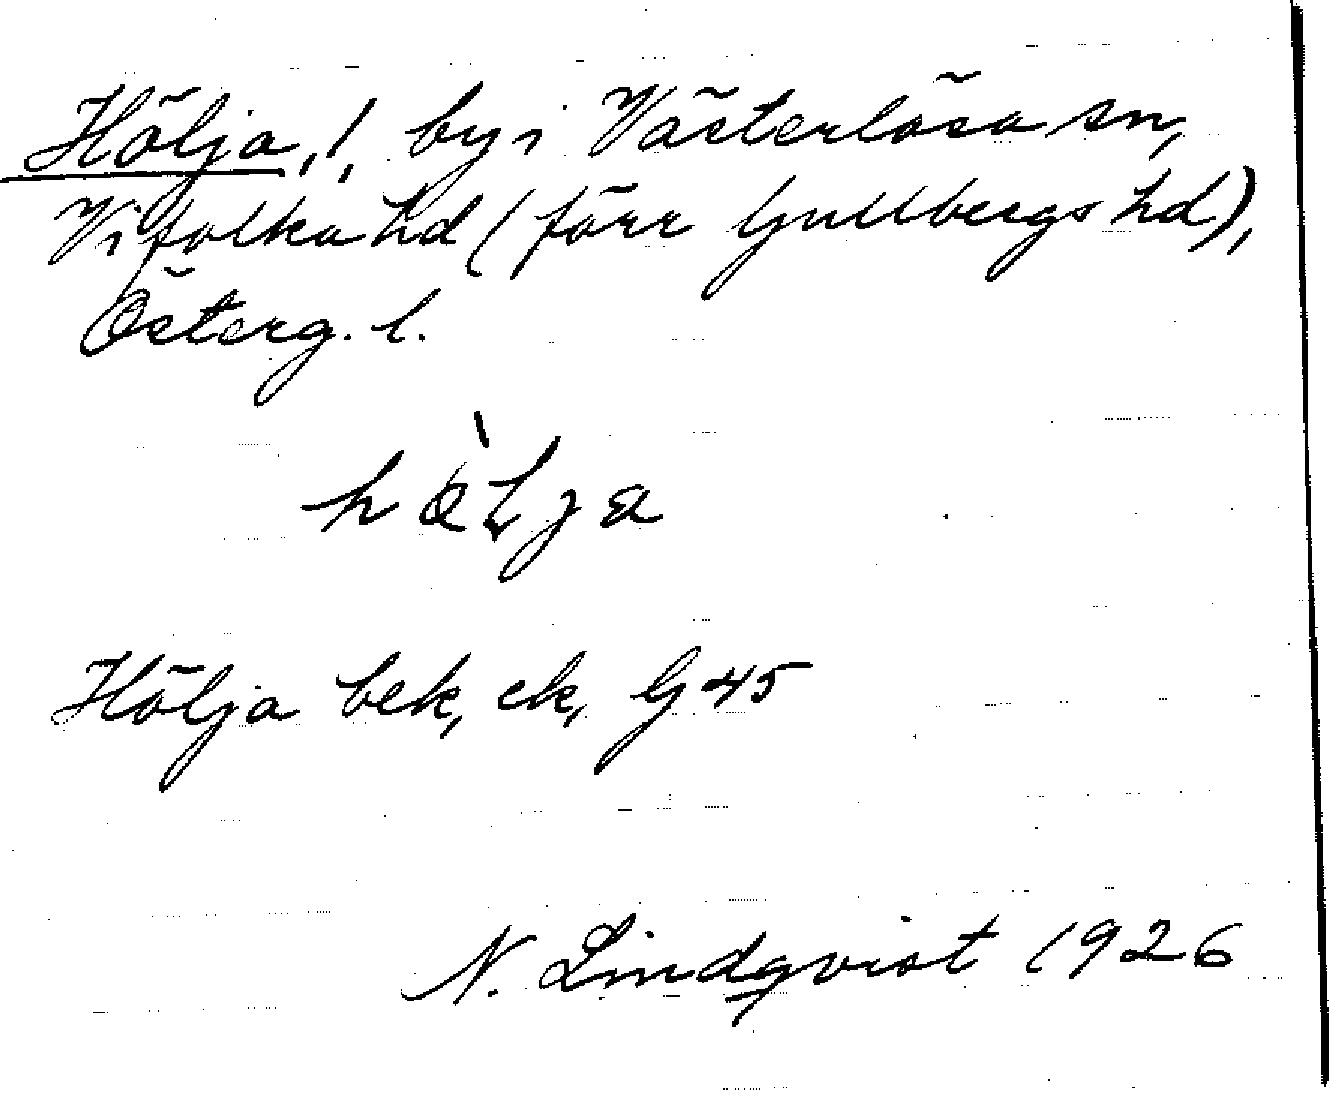 Hölja, !, by i Västerlösa sn,
Vifolka hd (förr Gullbergs hd),
Österg. l.
Hölja bek, ek, G 45
N. Lindqvist 1926